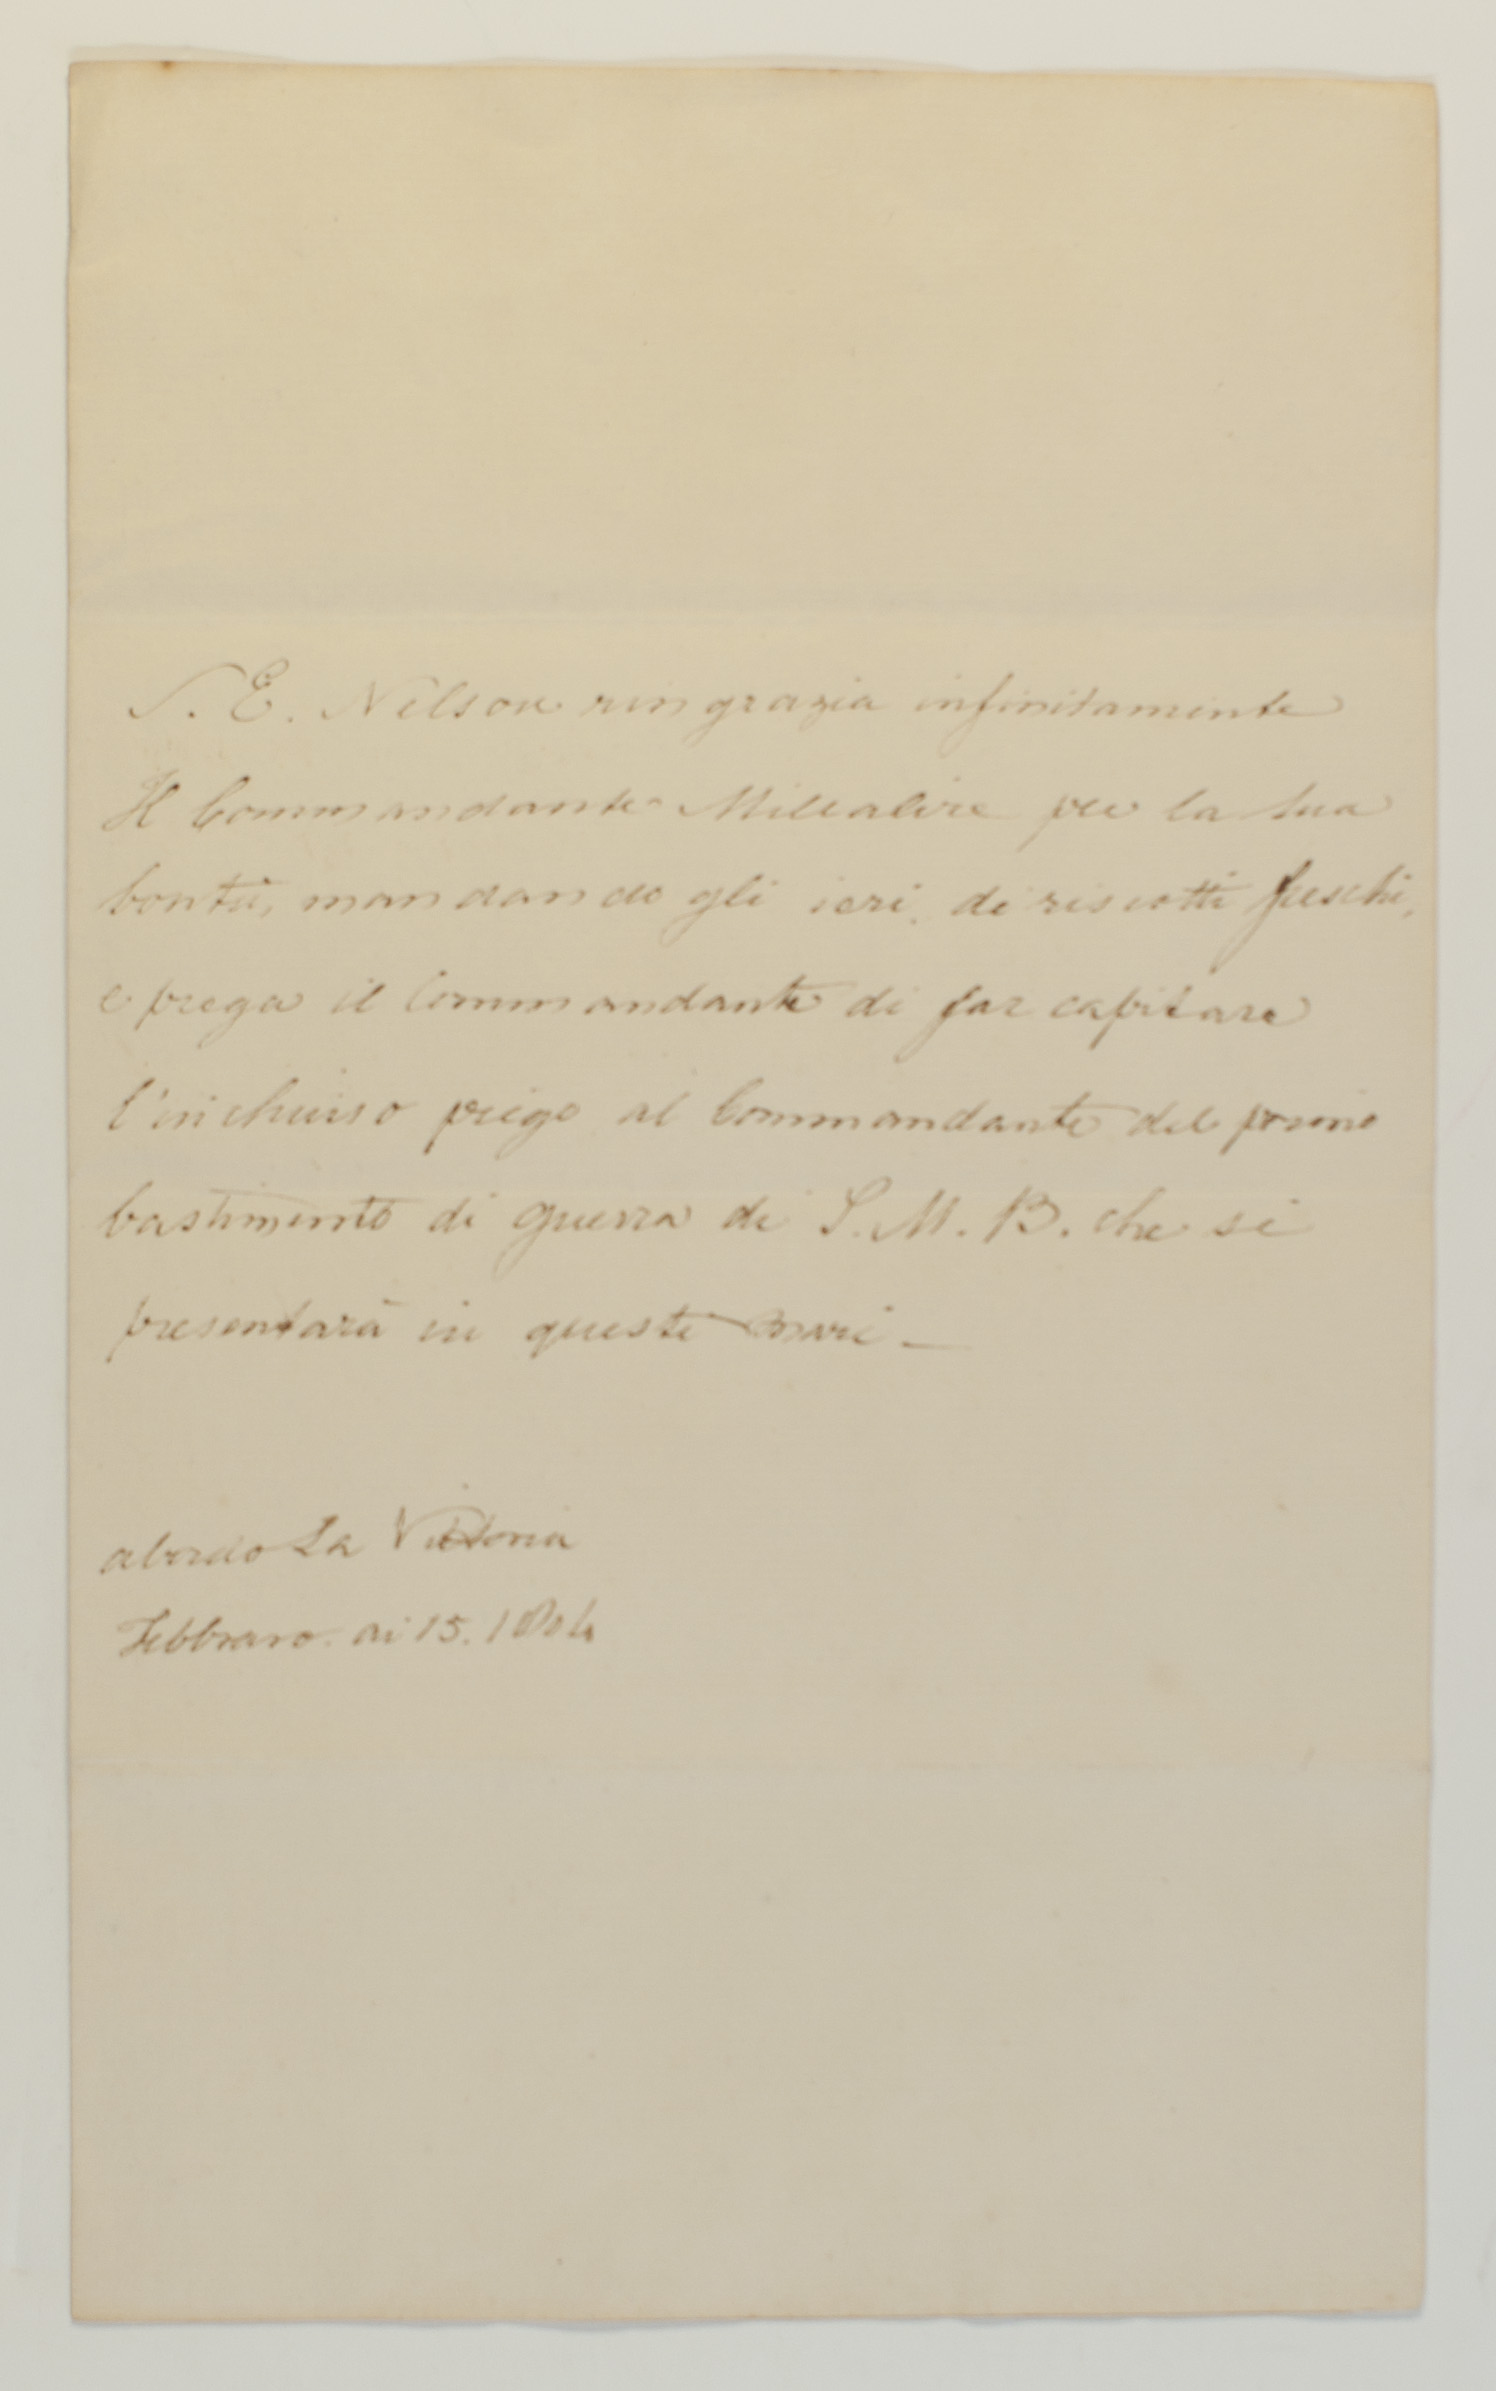 S. E. Nelson ringrazia infinitamente
Il Commandante Millealire per la sua
bontà, mandando gli ieri. di riscotti freschi,
e prega il Commandante di far capitare
l'inchiuso piego al Commandante del primo
bastimento di guerra di S. M. B. che si
presentarà in questi mari_
abordo La Vittoria
Febbraro. ai 15. 1804